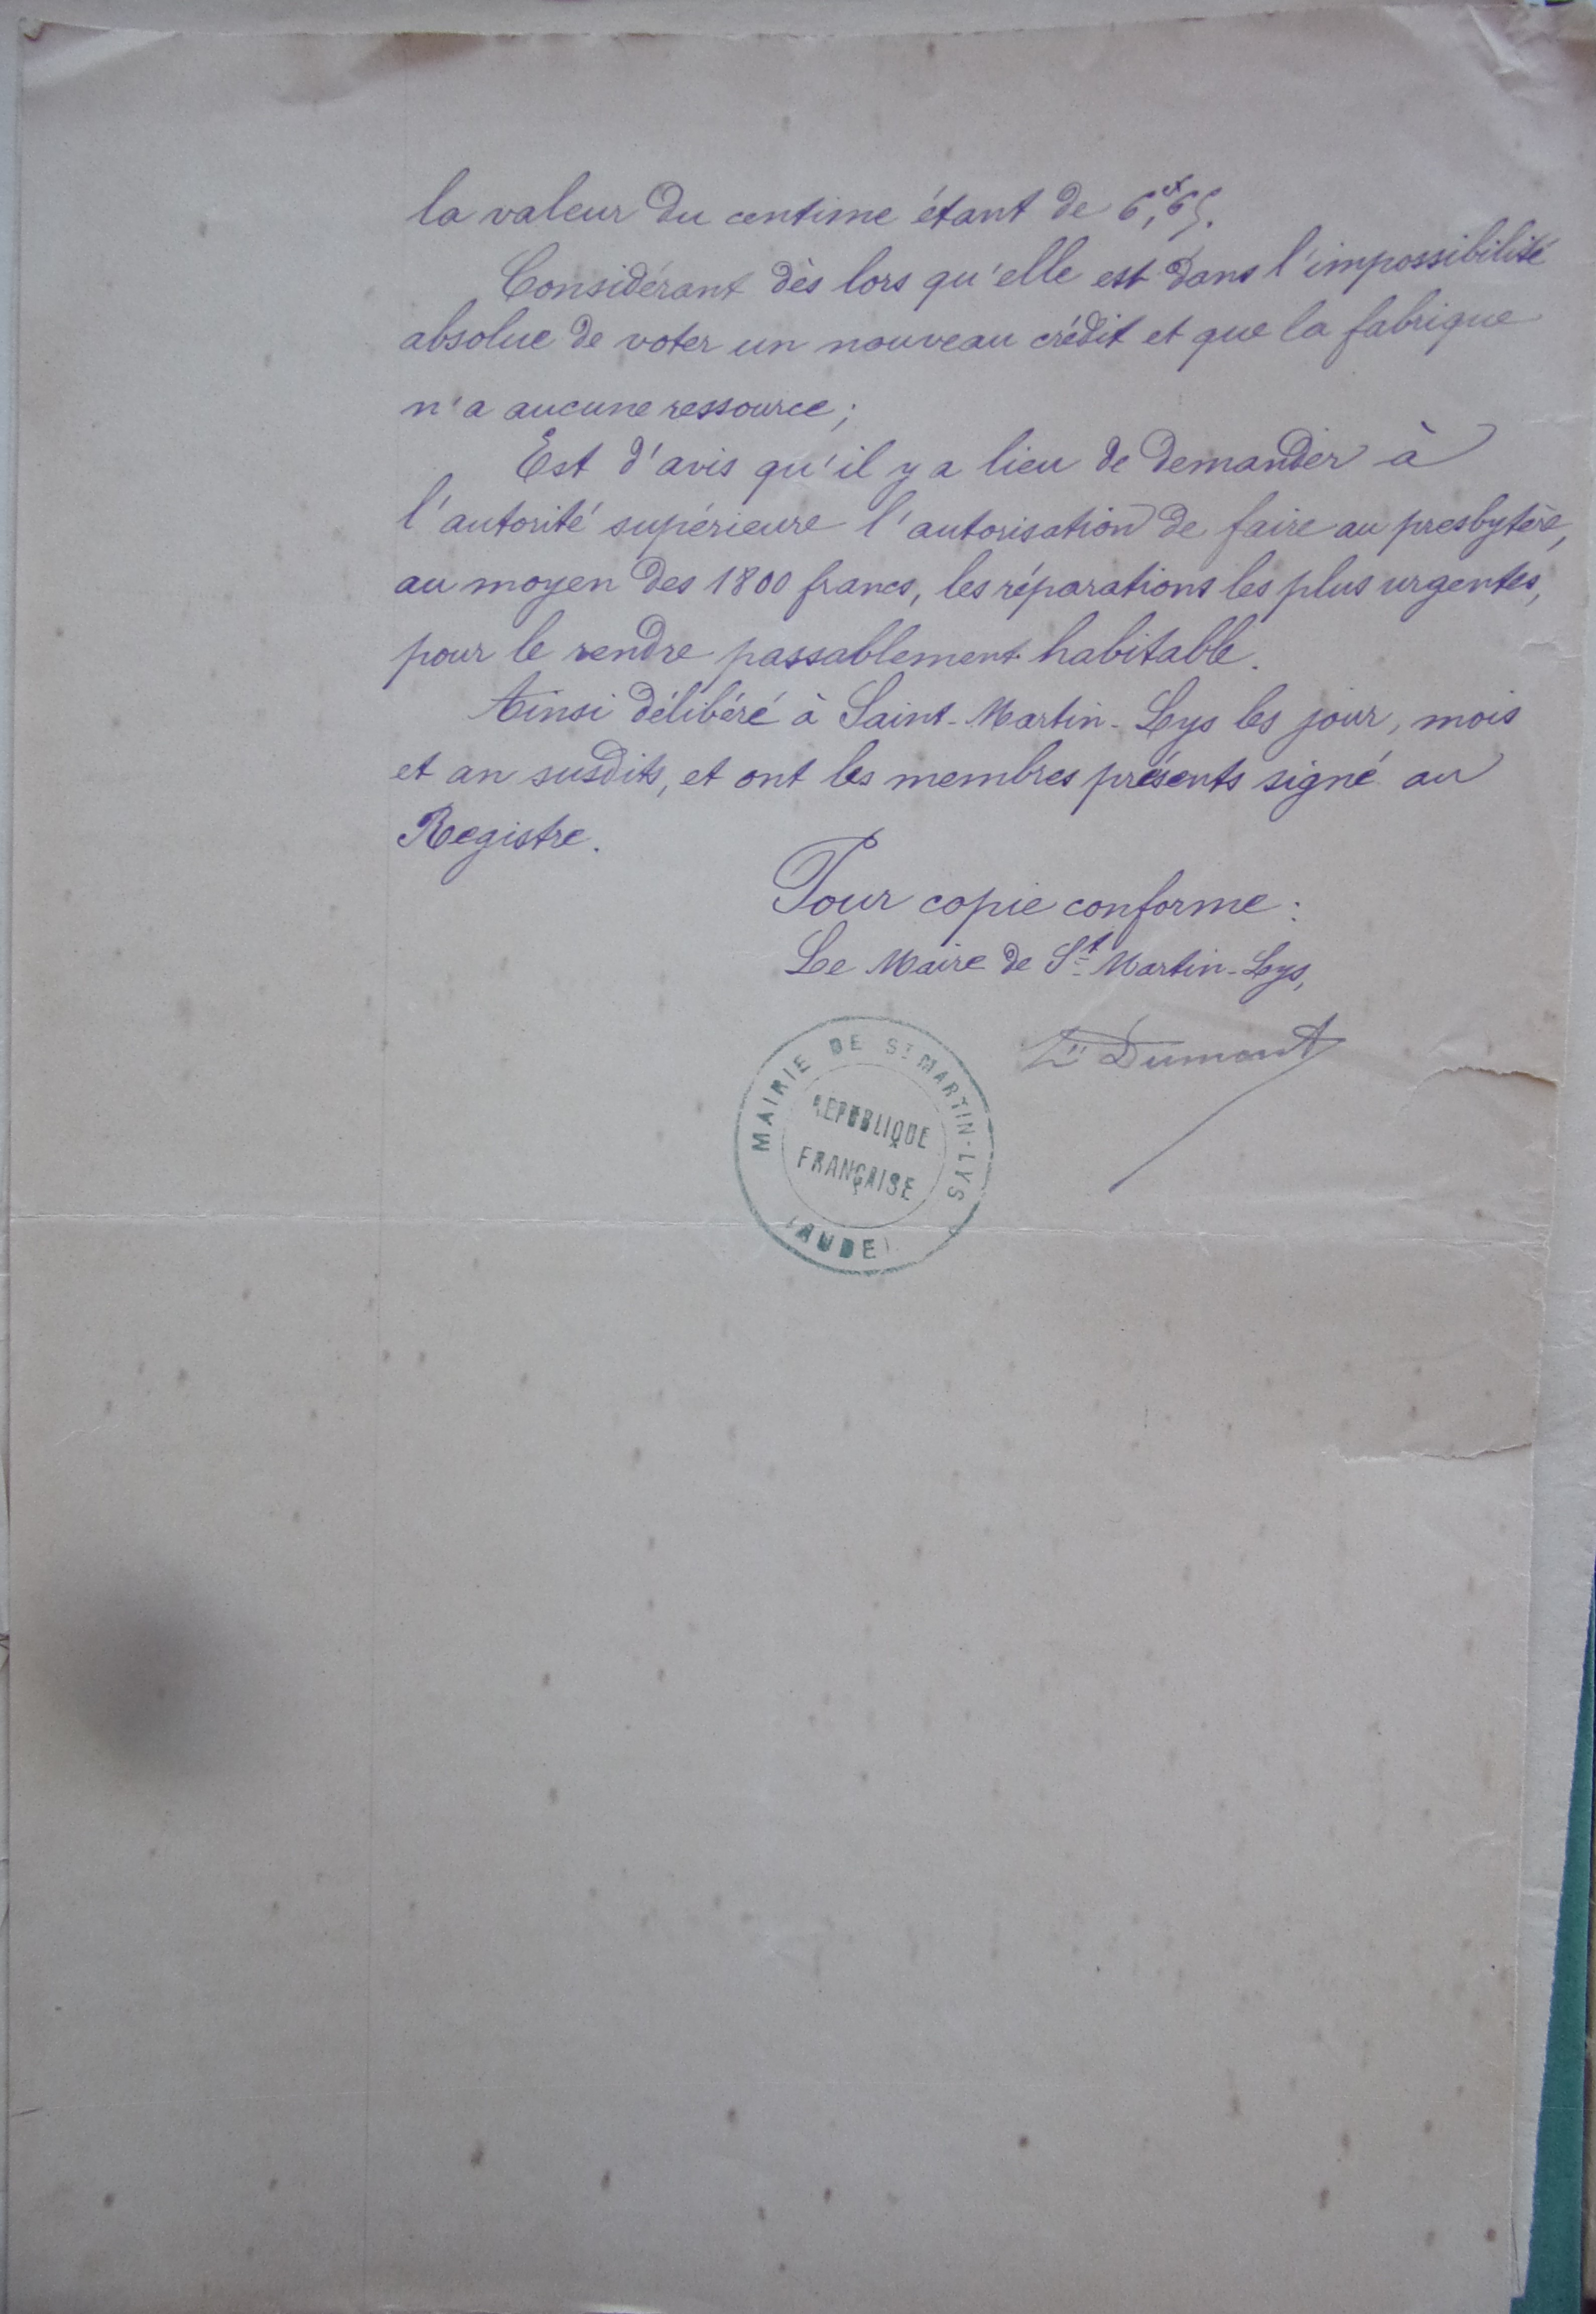 la valeur du centime étant de 6,65.
Considérant dès lors qu'elle est dans l'impossibilité
absolue de voter un nouveau crédit et que la fabrique
n'a aucune ressource ;
Est d'avis qu'il y a lieu de demander à
l'autorité supérieure l'autorisation de faire au presbytère,
au moyen des 1800 francs, les réparations les plus urgentes,
pour le rendre passablement habitable.
Ainsi délibéré à Saint-Martin-Lys les jour, mois
et an susdits, et ont les membres présents signé au
Registre.
Pour copie conforme :
Le Maire de St Martin-Lys,
Dumont
MAIRIE DE ST MARTIN-LYS
REPUBLIQUE
FRANÇAISE
(AUDE)